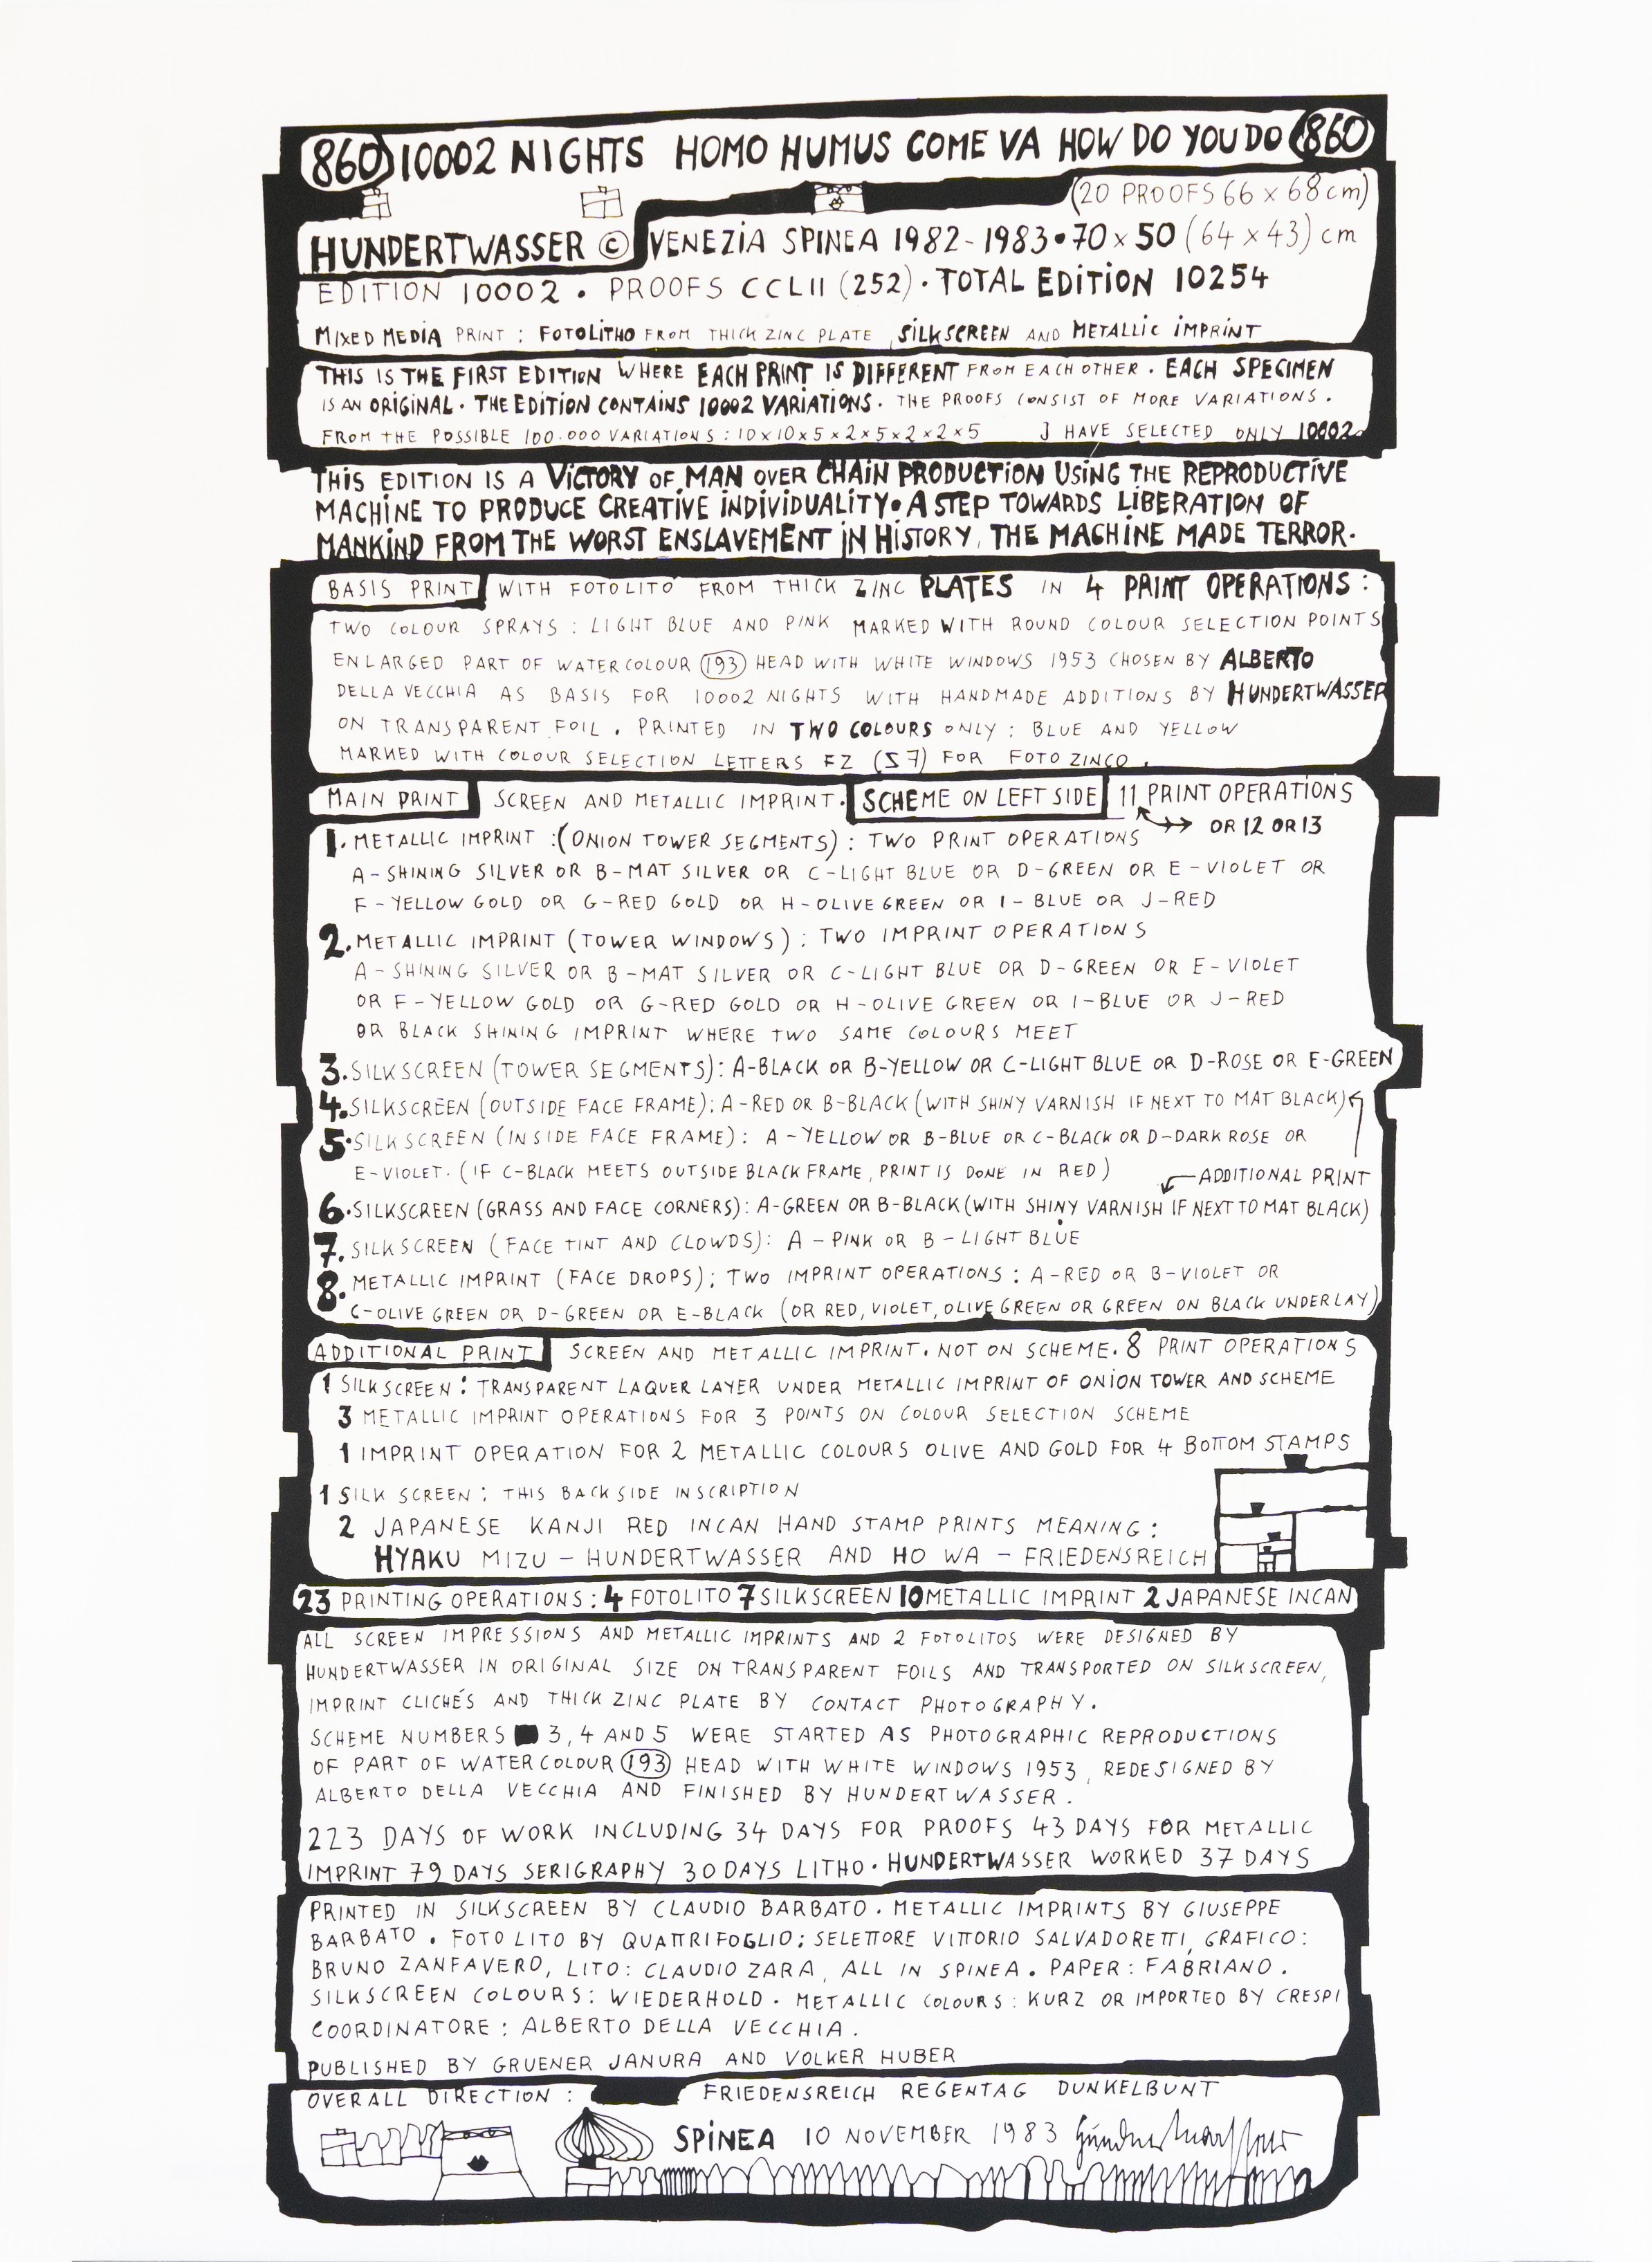 860 10002 NIGHTS HOMO HUMUS COME VA HOW DO YOU DO 860
(20 PROOFS 66 x 68 cm)
HUNDERTWASSER © VENEZIA SPINEA 1982-1983 • 70 x 50 (64 x 43) cm
EDITION 10002 . PROOFS CCLII (252) . TOTAL EDITION 10254
MIXED MEDIA PRINT : FOTOLITHO FROM THICK ZINC PLATE , SILKSCREEN AND METALLIC IMPRINT
THIS IS THE FIRST EDITION WHERE EACH PRINT IS DIFFERENT FROM EACH OTHER . EACH SPECIMEN
IS AN ORIGINAL . THE EDITION CONTAINS 10002 VARIATIONS . THE PROOFS CONSIST OF MORE VARIATIONS .
FROM THE POSSIBLE 100.000 VARIATIONS : 10 x 10 x 5 x 2 x 5 x 2 x 2 x 5 I HAVE SELECTED ONLY 10002
THIS EDITION IS A VICTORY OF MAN OVER CHAIN PRODUCTION USING THE REPRODUCTIVE
MACHINE TO PRODUCE CREATIVE INDIVIDUALITY . A STEP TOWARDS LIBERATION OF
MANKIND FROM THE WORST ENSLAVEMENT IN HISTORY, THE MACHINE MADE TERROR.
BASIS PRINT WITH FOTOLITO FROM THICK ZINC PLATES IN 4 PRINT OPERATIONS :
TWO COLOUR SPRAYS : LIGHT BLUE AND PINK MARKED WITH ROUND COLOUR SELECTION POINTS
ENLARGED PART OF WATERCOLOUR 193 HEAD WITH WHITE WINDOWS 1953 CHOSEN BY ALBERTO
DELLA VECCHIA AS BASIS FOR 10002 NIGHTS WITH HANDMADE ADDITIONS BY HUNDERTWASSER
ON TRANSPARENT FOIL . PRINTED IN TWO COLOURS ONLY : BLUE AND YELLOW
MARKED WITH COLOUR SELECTION LETTERS FZ (S7) FOR FOTO ZINCO .
MAIN PRINT SCREEN AND METALLIC IMPRINT. SCHEME ON LEFT SIDE 11 PRINT OPERATIONS
OR 12 OR 13
1. METALLIC IMPRINT : (ONION TOWER SEGMENTS) : TWO PRINT OPERATIONS
A - SHINING SILVER OR B - MAT SILVER OR C - LIGHT BLUE OR D - GREEN OR E - VIOLET OR
F - YELLOW GOLD OR G - RED GOLD OR H - OLIVE GREEN OR I - BLUE OR J - RED
2. METALLIC IMPRINT (TOWER WINDOWS) : TWO IMPRINT OPERATIONS
A - SHINING SILVER OR B - MAT SILVER OR C - LIGHT BLUE OR D - GREEN OR E - VIOLET
OR F - YELLOW GOLD OR G - RED GOLD OR H - OLIVE GREEN OR I - BLUE OR J - RED
OR BLACK SHINING IMPRINT WHERE TWO SAME COLOURS MEET
3. SILKSCREEN (TOWER SEGMENTS) : A-BLACK OR B-YELLOW OR C-LIGHT BLUE OR D-ROSE OR E-GREEN
4. SILKSCREEN (OUTSIDE FACE FRAME) : A-RED OR B-BLACK (WITH SHINY VARNISH IF NEXT TO MAT BLACK)
5. SILKSCREEN (INSIDE FACE FRAME) : A - YELLOW OR B-BLUE OR C-BLACK OR D-DARK ROSE OR
E-VIOLET. (IF C-BLACK MEETS OUTSIDE BLACK FRAME, PRINT IS DONE IN RED)
ADDITIONAL PRINT
6. SILKSCREEN (GRASS AND FACE CORNERS) : A-GREEN OR B-BLACK (WITH SHINY VARNISH IF NEXT TO MAT BLACK)
7. SILKSCREEN (FACE TINT AND CLOWDS) : A - PINK OR B - LIGHT BLUE
8. METALLIC IMPRINT (FACE DROPS) ; TWO IMPRINT OPERATIONS : A-RED OR B-VIOLET OR
C-OLIVE GREEN OR D-GREEN OR E-BLACK (OR RED, VIOLET, OLIVE GREEN OR GREEN ON BLACK UNDERLAY)
ADDITIONAL PRINT SCREEN AND METALLIC IMPRINT. NOT ON SCHEME. 8 PRINT OPERATIONS
1 SILKSCREEN : TRANSPARENT LAQUER LAYER UNDER METALLIC IMPRINT OF ONION TOWER AND SCHEME
3 METALLIC IMPRINT OPERATIONS FOR 3 POINTS ON COLOUR SELECTION SCHEME
1 IMPRINT OPERATION FOR 2 METALLIC COLOURS OLIVE AND GOLD FOR 4 BOTTOM STAMPS
1 SILK SCREEN : THIS BACKSIDE INSCRIPTION
2 JAPANESE KANJI RED INCAN HAND STAMP PRINTS MEANING :
HYAKU MIZU - HUNDERTWASSER AND HO WA - FRIEDENSREICH
23 PRINTING OPERATIONS : 4 FOTOLITO 7 SILKSCREEN 10 METALLIC IMPRINT 2 JAPANESE INCAN
ALL SCREEN IMPRESSIONS AND METALLIC IMPRINTS AND 2 FOTOLITOS WERE DESIGNED BY
HUNDERTWASSER IN ORIGINAL SIZE ON TRANSPARENT FOILS AND TRANSPORTED ON SILKSCREEN,
IMPRINT CLICHÉS AND THICK ZINC PLATE BY CONTACT PHOTOGRAPHY.
SCHEME NUMBERS 3, 4 AND 5 WERE STARTED AS PHOTOGRAPHIC REPRODUCTIONS
OF PART OF WATERCOLOUR 193 HEAD WITH WHITE WINDOWS 1953, REDESIGNED BY
ALBERTO DELLA VECCHIA AND FINISHED BY HUNDERTWASSER .
223 DAYS OF WORK INCLUDING 34 DAYS FOR PROOFS 43 DAYS FOR METALLIC
IMPRINT 79 DAYS SERIGRAPHY 30 DAYS LITHO . HUNDERTWASSER WORKED 37 DAYS
PRINTED IN SILKSCREEN BY CLAUDIO BARBATO . METALLIC IMPRINTS BY GIUSEPPE
BARBATO . FOTOLITO BY QUATTRIFOGLIO ; SELETTORE VITTORIO SALVADORETTI, GRAFICO :
BRUNO ZANFAVERO, LITO : CLAUDIO ZARA, ALL IN SPINEA . PAPER : FABRIANO .
SILKSCREEN COLOURS : WIEDERHOLD . METALLIC COLOURS : KURZ OR IMPORTED BY CRESPI
COORDINATORE : ALBERTO DELLA VECCHIA .
PUBLISHED BY GRUENER JANURA AND VOLKER HUBER
OVERALL DIRECTION : FRIEDENSREICH REGENTAG DUNKELBUNT
SPINEA 10 NOVEMBER 1983 Hundertwasser